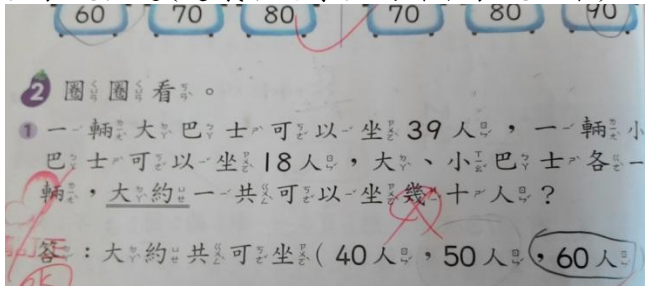 60 70 80 70 80 90
2 圈圈看。
1 一輛大巴士可以坐39人，一輛小
巴士可以坐18人，大、小巴士各一
輛，大約一共可以坐幾十人？
答：大約共可坐(40人，50人，60人